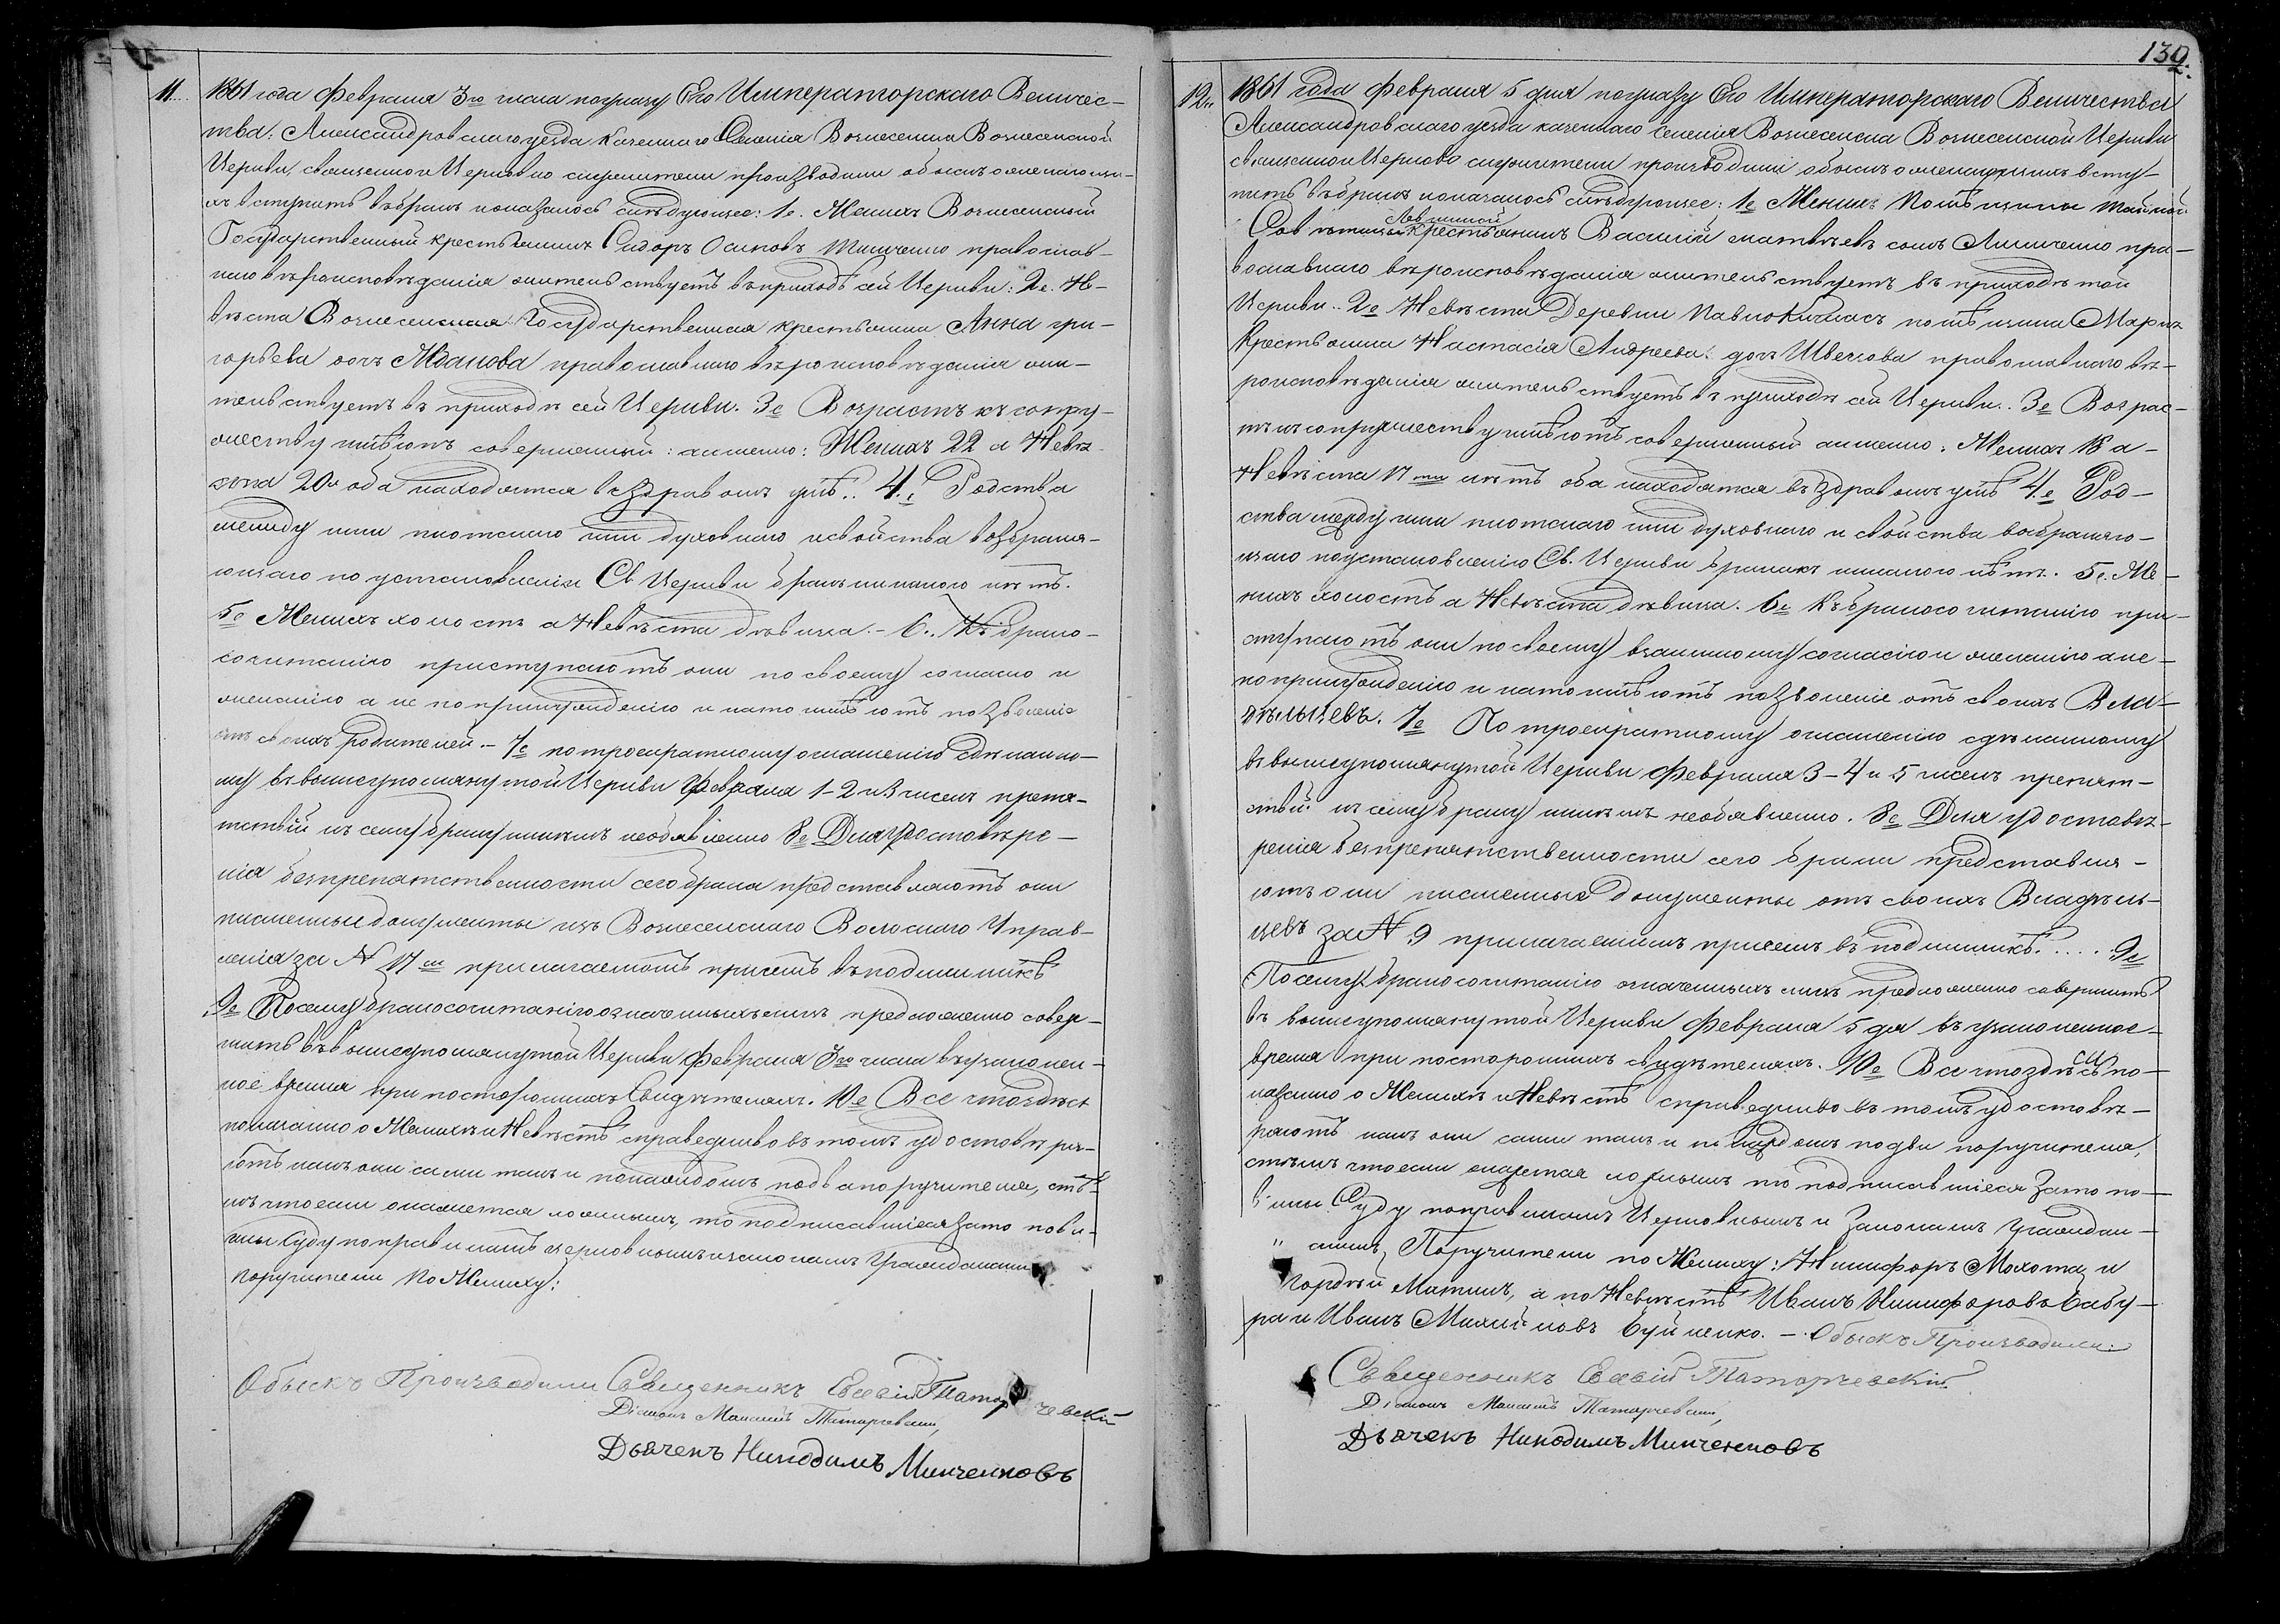 11. 1861 года Февраля 3го числа поуказу Его Императорскаго Величес-
тва: Александровскаго уезда казеннаго Селенія Вознесенка Вознесенской
Церкви, священно и Церковно служители производили обыскъ о желающи-
хъ вступить въбракъ и оказалось слѣдующее: 1е. Женихъ Вознесенский
Государственный крестьянинъ Сидоръ Осиповъ Тимченко православ-
наго вѣроисповѣданія жительствуетъ въприходѣ сей Церкви: 2е. Не-
вѣста Вознесенская Государственная крестьянка Анна гри-
горьева дочь Жданова православнаго вѣроисповѣданія жи-
тельствуетъ въ приходѣ сей Церкви. 3е Возрастъ къ супру-
жеству имѣютъ совершенный: аименно: Женихъ 22 а Невѣ-
ста 20и оба находятся въздравомъ умѣ.. 4.е Родства
между ими плотскаго или духовнаго исвойства возбраня-
ющаго по установленію Св. Церкви бракъ никакого нѣтъ.
5е Женихъ холостъ а Невѣста дѣвица. - 6.. Къ брако-
сочитанію приступаютъ они по своему согласію и
желанію а не попринужденію и нато имѣютъ позволеніе
отъ своихъ родителей. - 7е по троекратному оглашенію сдѣланно-
му въ вышеупомянутой Церкви Февраля 1-2 и 3 числъ препя-
тствій къ сему браку никѣмъ необявленно 8е Для удостовѣре-
нія безпрепятственности сего брака представляютъ они
писменныи документы изъ Вознесенскаго Волоснаго Управ-
ленія за № 17м прилагаемомъ присемъ въподлинникѣ
9е Посему бракосочитанію означенныхъ лицъ предложенно совер-
шить въ вышеупомянутой Церкви Февраля 3го числа въузаконен-
ное время при постороннихъ Свидѣтеляхъ. 10е Все чтоздѣсь
показанно о Женихѣ и Невѣстѣ справедливо въ томъ удостовѣря-
ютъ какъ они сами такъ и покаждомъ подва поручителя, стѣ-
мъ что если окажется ложнымъ, то подписавшіеся зато пови-
нны Суду по правиламъ церковнымъ изаконамъ Гражданскимъ
поручители по Жениху:
Обыскъ Производили Священникъ Евсевій Татарчевскій
Діаконъ Татарчевскій,
Дьячекъ Никодимъ Минченковъ
139.
12. 1861 года Февраля 5 дня поуказу Его Императорскаго Величества
Александровскаго уезда казеннаго Селенія Вознесенка Вознесенской Церкви
священно и Церковно служители производили обыскъ о желающихъ всту-
пить въбракъ и оказалось слѣдующее: 1е Женихъ Помѣщицы Тайной
Совѣтницы крестьянинъ Василій матвѣевъ сынъ Линиченко пра-
вославнаго вѣроисповѣданія жительствуетъ въ приходѣ той
Церкви.. 2е Невѣста Деревни помѣщика Маркъ
Крестьянка Настасія Андреева дочь Швецова православнаго вѣ-
роисповѣданія жительствуетъ въ приходѣ сей Церкви.. 3е Возрас-
тъ къ супружеству имѣютъ совершенный аименно: Женихъ 18 а
Невѣста 17ти лѣтъ оба находятся въ здравомъ умѣ 4.е Род-
ства между ими плотскаго или духовнаго и свойства возбраняю-
щаго поустановленію Св. Церкви бракъ никакого нѣтъ. 5е. Же-
нихъ холостъ а Невѣста дѣвица. 6е Къ бракосочитанію при-
ступаютъ они по своему взаимному согласію и желанію а не
попринужденію и нато имѣютъ позволеніе отъ своихъ Вла-
дѣльцевъ. 7е По троекратному оглашенію сдѣланному
въ вышеупомянутой Церкви Февраля 3-4 и 5 числъ препят-
ствій къ сему браку никѣмъ необявленно. 8е Для удостовѣ-
ренія безпрепятственности сего брака представля-
ютъ они писменныя документы отъ своихъ Владѣль-
цевъ за № 9 прилагаемымъ присемъ въ подлинникѣ. . . . . 9е
Посему бракосочитанію означенныхъ лицъ предложенно совершить
въ вышеупомянутой Церкви Февраля 5 дня въ узаконенное
время при постороннихъ свидѣтеляхъ. 10е Все что здѣсь по-
казанно о Женихѣ и Невѣстѣ справедливо въ томъ удостовѣ-
ряютъ какъ они сами такъ и по каждомъ подва поручителя,
стѣмъ что если окажется ложнымъ то подписавшіеся зато по-
винны Суду поправиламъ Церковнымъ и Законамъ Граждан-
" скимъ, Поручители по Жениху: Никифоръ Махота и
Гордѣй Матяшъ, а по Невѣстѣ Иванъ Никифоровъ Бабу-
ра и Иванъ Михайловъ Буйленко. - Обыскъ Производили:
Священникъ Евсевій Татарчевскій
Діаконъ Татарчевскій,
Дьячекъ Никодимъ Минченковъ